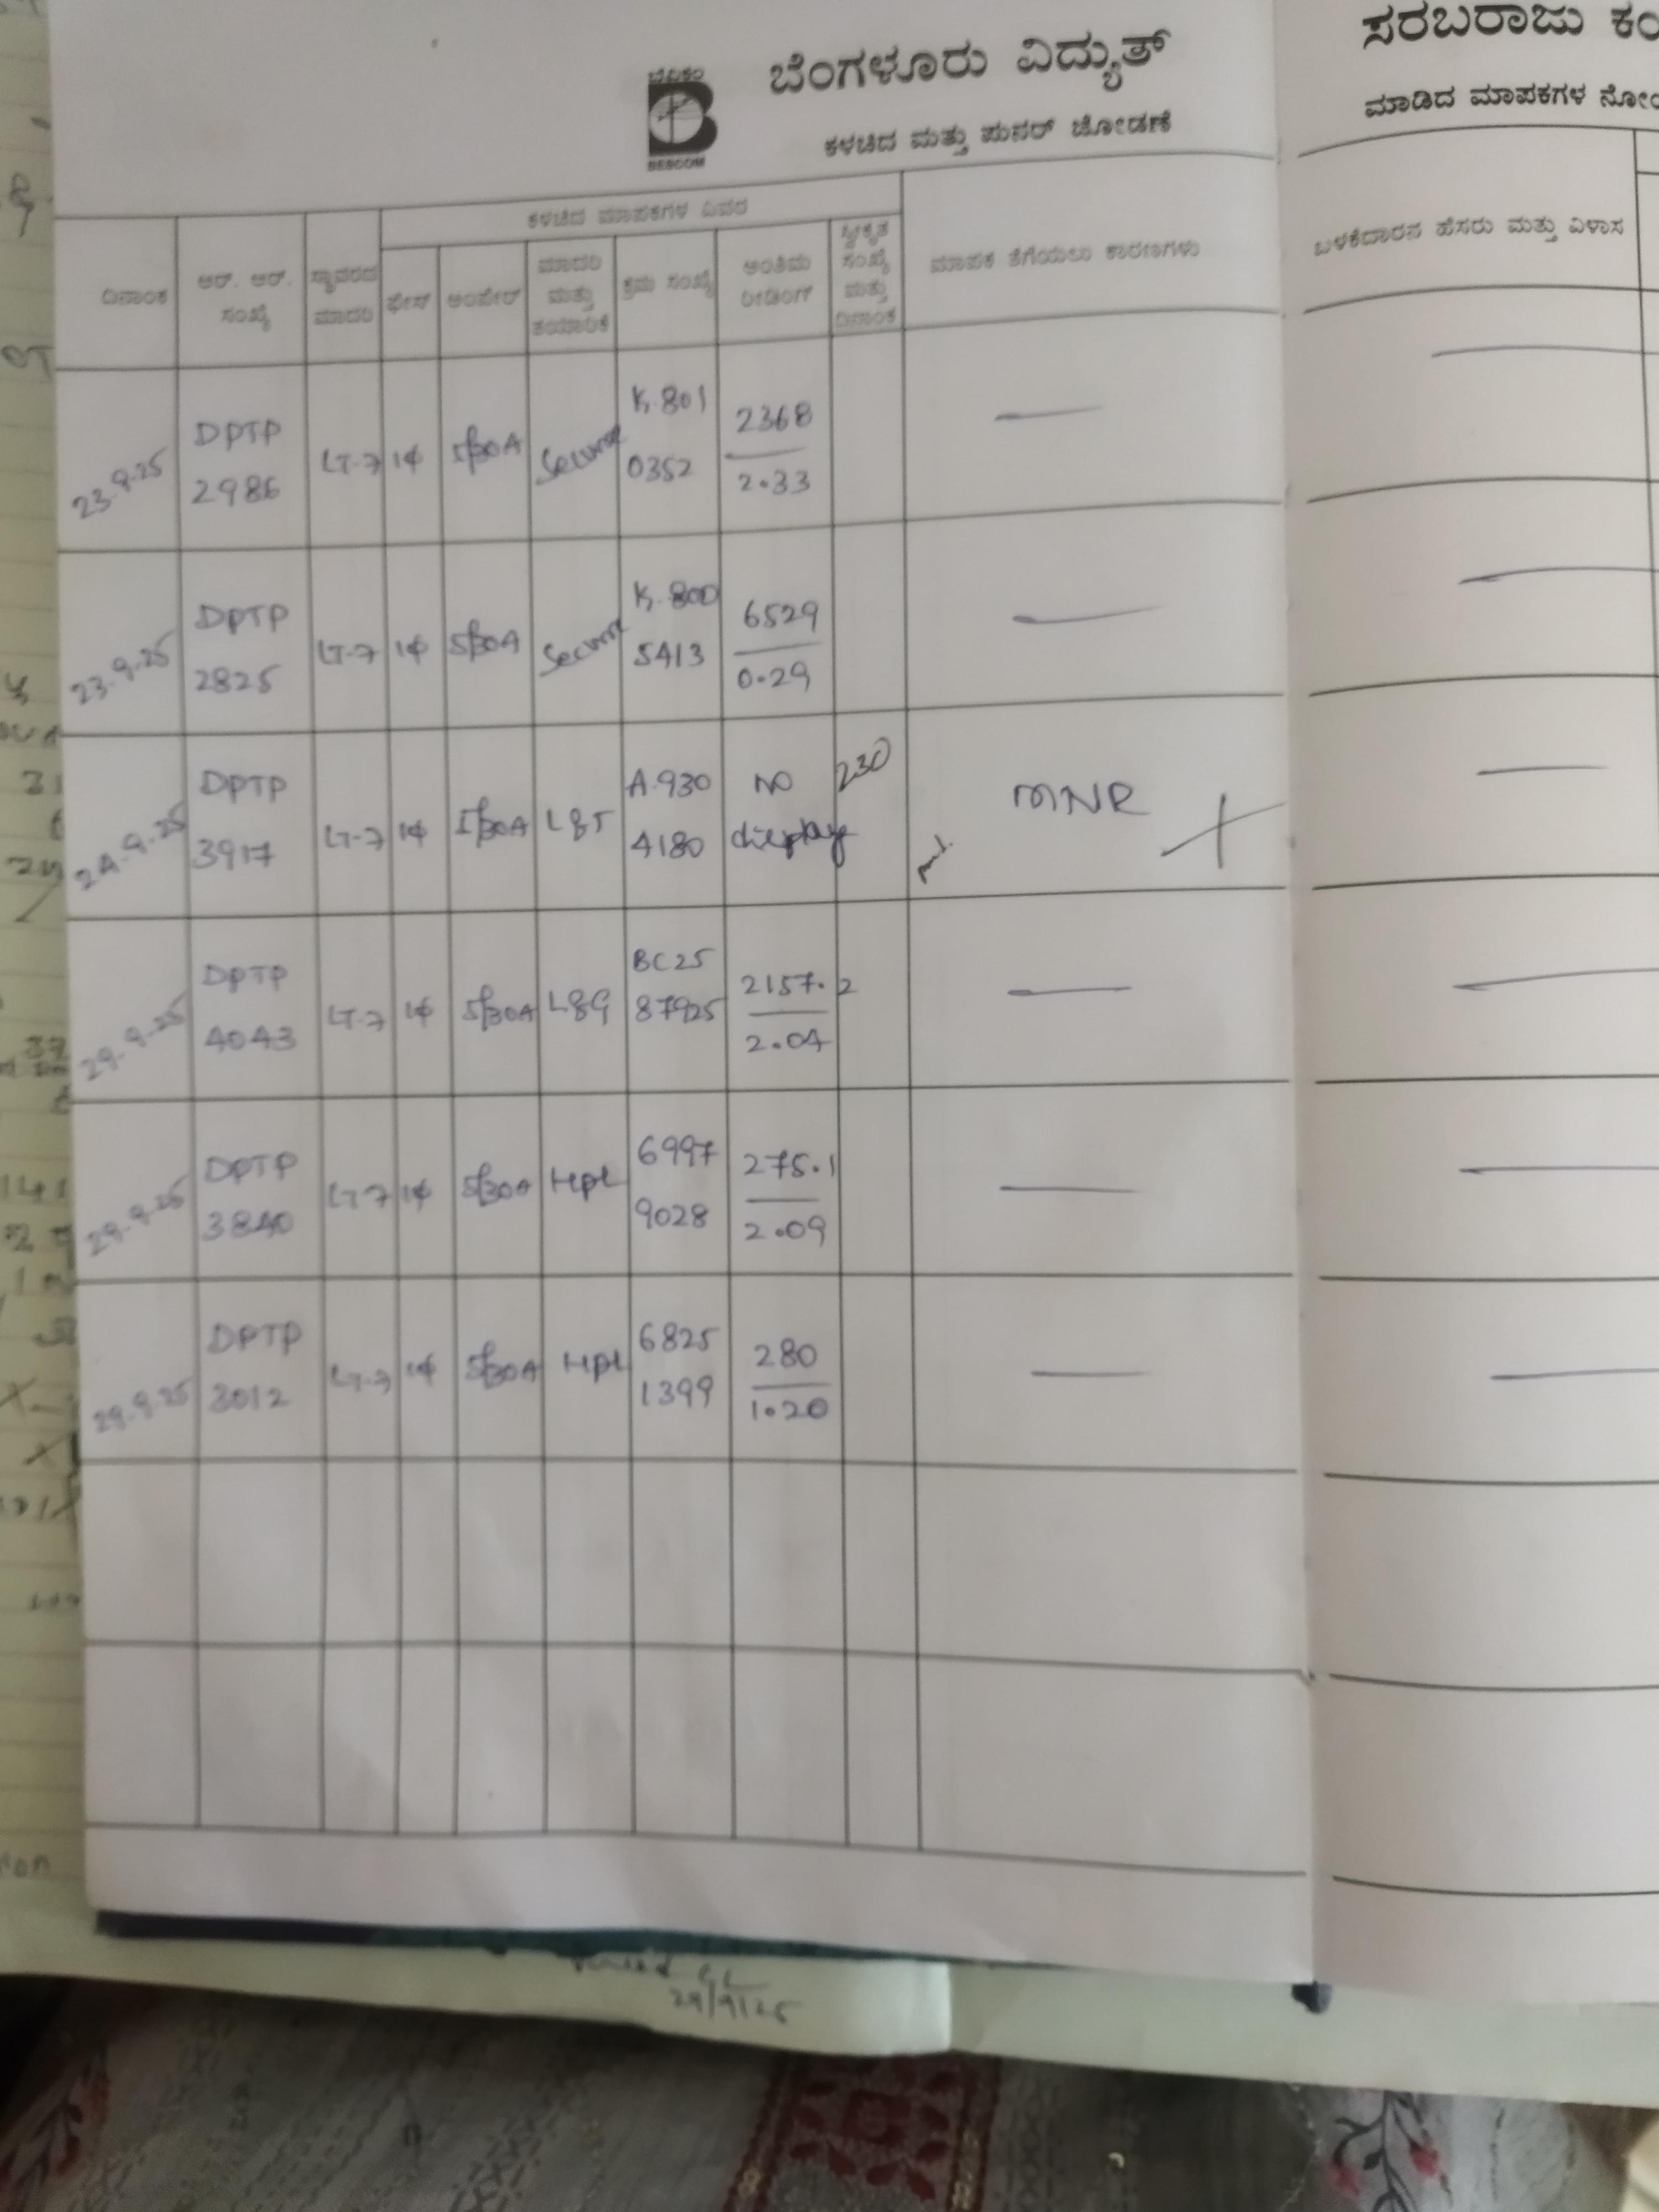 ಬೆವಿಕಂ
B
BESCOM
ಬೆಂಗಳೂರು ವಿದ್ಯುತ್
ಕಳಚಿದ ಮತ್ತು ಪುನರ್ ಜೋಡಣೆ
ಸರಬರಾಜು ಕಂ
ಮಾಡಿದ ಮಾಪಕಗಳ ನೋಂ
ದಿನಾಂಕ
ಆರ್. ಆರ್.
ಸಂಖ್ಯೆ
ಸ್ಥಾವರದ
ಮಾದರಿ
ಕಳಚಿದ ಮಾಪಕಗಳ ವಿವರ
ಫೇಸ್
ಅಂಪೇರ್
ಮಾದರಿ
ಮತ್ತು
ತಯಾರಿಕೆ
ಕ್ರಮ ಸಂಖ್ಯೆ
ಅಂತಿಮ
ರೀಡಿಂಗ್
ಸ್ವೀಕೃತ
ಸಂಖ್ಯೆ
ಮತ್ತು
ದಿನಾಂಕ
ಮಾಪಕ ತೆಗೆಯಲು ಕಾರಣಗಳು
ಬಳಕೆದಾರನ ಹೆಸರು ಮತ್ತು ವಿಳಾಸ
23.9.25
DPTP
2986
LT-7
1ϕ
5/30A
Secure
K.801
0352
2368
2.33
23.9.25
DPTP
2825
LT-7
1ϕ
5/30A
Secure
K.800
5413
6529
0.29
24.9.25
DPTP
3917
LT-7
1ϕ
5/30A
L&T
A.930
4180
NO
display
230
MNR
29.9.25
DPTP
4043
LT-7
1ϕ
5/30A
L&G
BC25
87925
2157.2
2.04
29.9.25
DPTP
3840
LT-7
1ϕ
5/30A
HPL
6997
9028
275.1
2.09
29.9.25
DPTP
3012
LT-7
1ϕ
5/30A
HPL
6825
1399
280
1.20
29/9/25